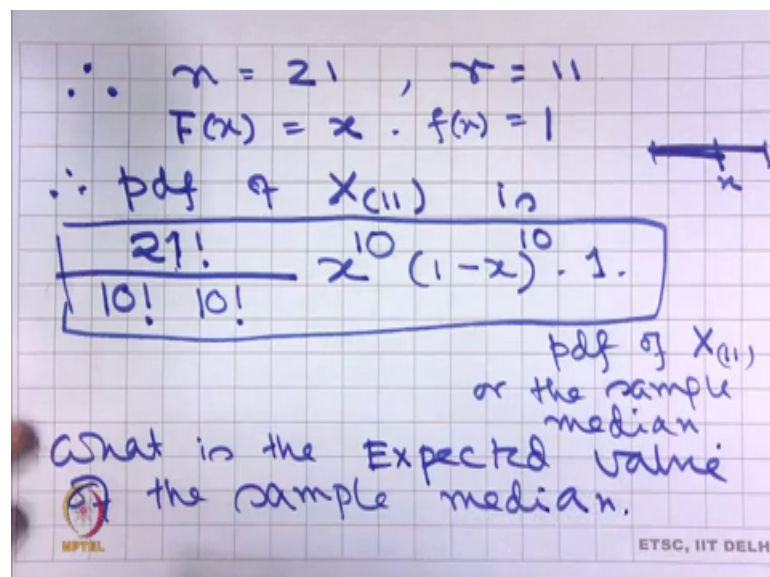 ∴ n = 21 , r = 11
F(x) = x . f(x) = 1
x
∴ pdf of X(11) is
21!
10! 10!
x^10 (1-x)^10 . 1.
pdf of X(11)
or the sample
median
What is the Expected value
of the sample median.
NPTEL
ETSC, IIT DELH